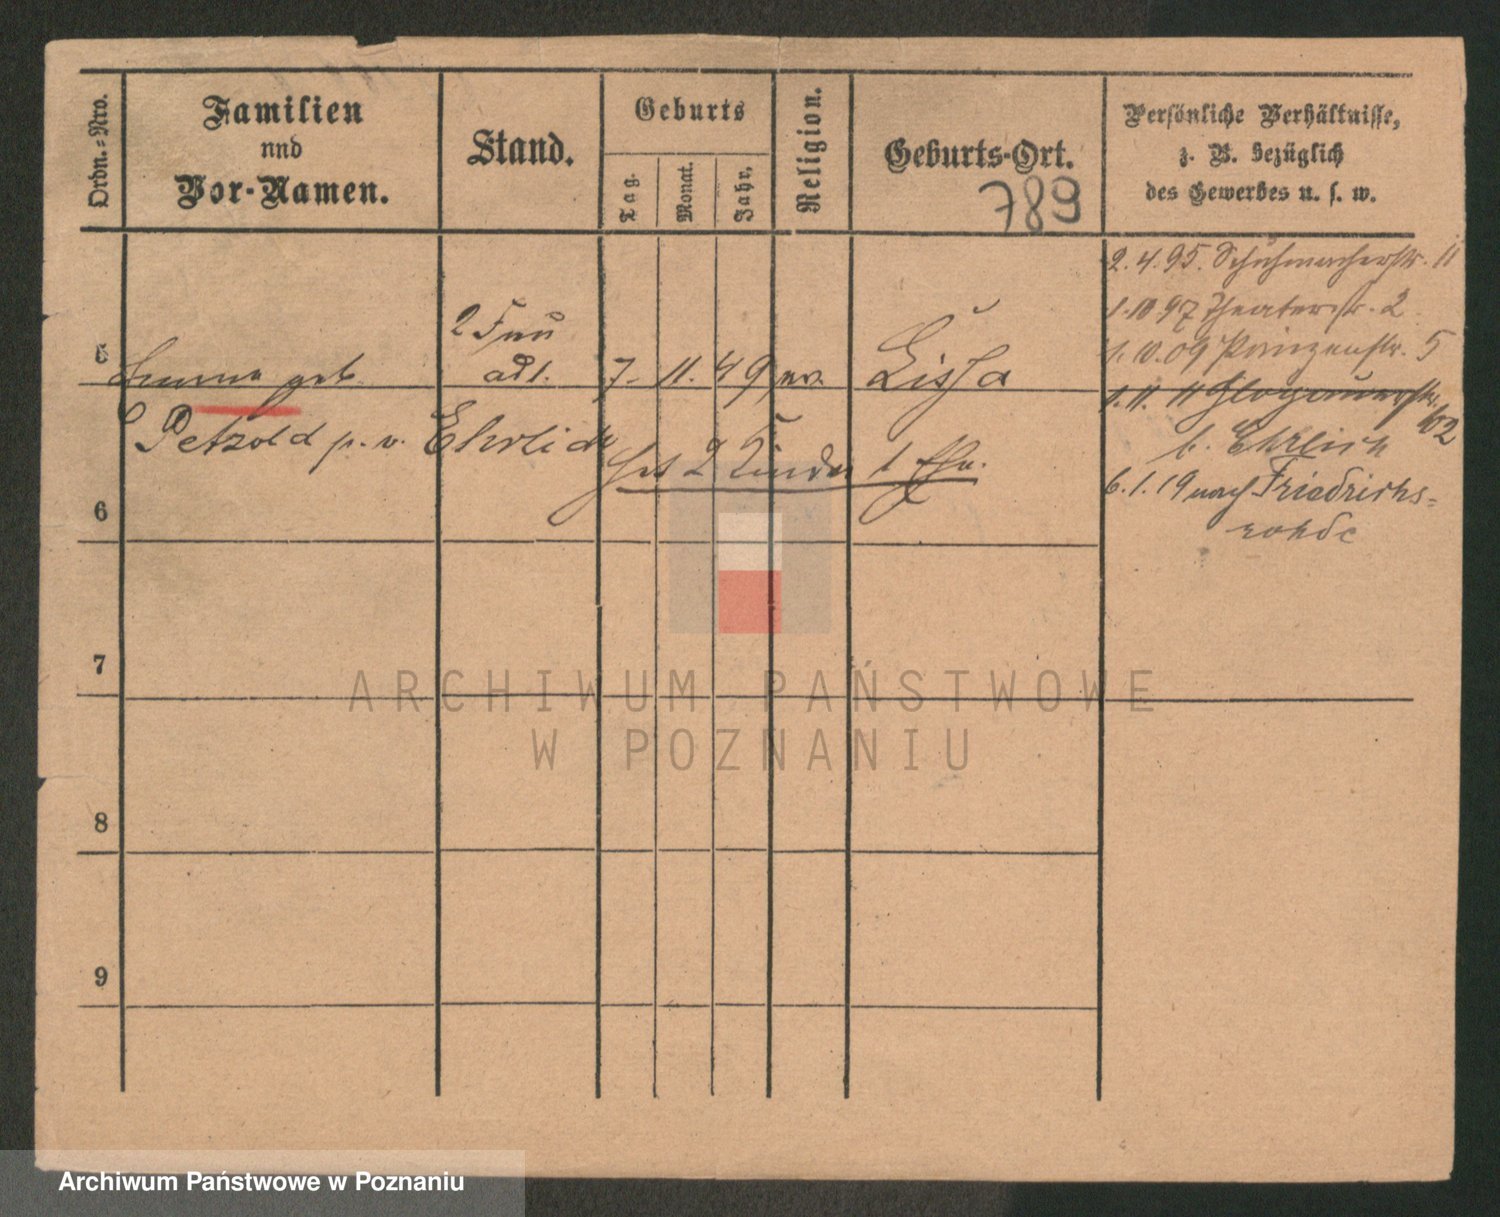 Ordn.=Nro.
Familien
und
Vor-Namen.
Stand.
Geburts
Tag.
Monat.
Jahr.
Religion.
Geburts-Ort.
789
Persönliche Verhältnisse,
z. B. bezüglich
des Gewerbes u. s. w.
2.4.95. Schuhmacherstr. 11
1.10 97 Theaterstr. 2
1.10.09 Prinzenstr. 5
2 Frau
5 geb. adl. 7. 11. 49 ev. Lissa
1.11.11 Glogauerstr.
102
Petzold p. v. Ehrlich
b. Ehrlich
hat 2 Kinder 1 Ehe.
6.1.19 nach Friedrichs=
rohde
6
7
ARCHIWUM PAŃSTWOWE
W POZNANIU
8
9
Archiwum Państwowe w Poznaniu